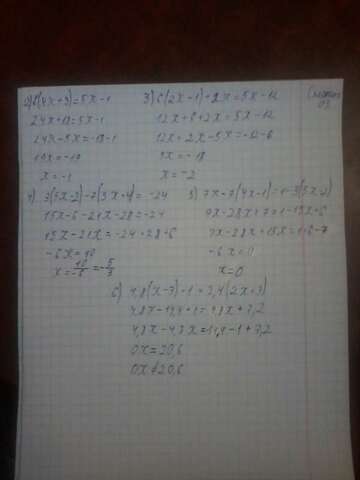 2) 6(4x+3)=5x-1
24x+18=5x-1
24x-5x=-18-1
19x=-19
x=-1
3) 6(2x-1)+2x=5x-12
12x-6+2x=5x-12
12x+2x-5x=-12+6
9x=-18
x=-2
4) 3(5x-2)-7(3x+4)=-24
15x-6-21x-28=-24
15x-21x=-24+28+6
-6x=10
x=10/-6=-5/3
5) 7x-7(4x-1)=1-3(5x-2)
7x-28x+7=1-15x+6
7x-28x+15x=1+6-7
-6x=0
x=0
6) 4,8(x-3)-1=2,4(2x+3)
=4,8x+7,2
4,8x-4,8x=14,4-1+7,2
0x=20,6
0x≠20,6